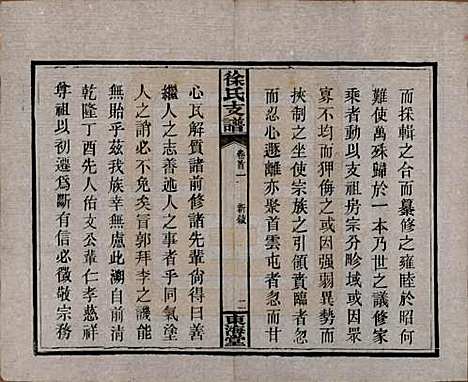 而採輯之合而纂修之雍睦於昭何
難使萬殊歸於一本乃世之議修家
乘者動以支祖房宗分畛域或因眾
寡不均而狎侮之或因强弱異勢而
挾制之坐使宗族之引領賁興者
而忍心遯離亦聚首雲屯者而甘
徐氏支譜
卷首一
新敘
二
東海堂
心瓦解質諸前修諸先輩尙得曰善
繼人之志善述人之事者乎同氣塗
人之誚必不免矣盲郭拜李之譏能
無貽乎茲我族幸無慮此溯自前清
乾隆丁酉先人佑文公輩仁孝慈祥
尊祖以初遷爲斷有信必徵敬宗務